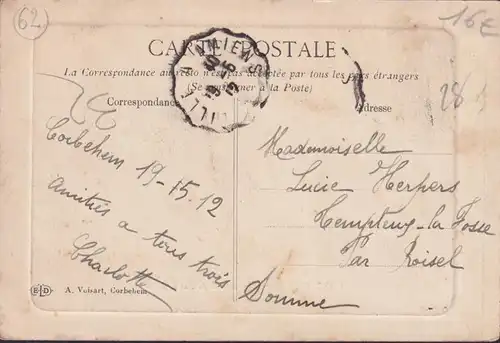 62
16€
28
CARTE POSTALE
La Correspondance au recto n'est pas acceptée par tous les pays étrangers
(Se renseigner à la Poste)
Correspondance
Adresse
AMIENS A LILLE
Corbehem 19-5.12
Amitiés a tous trois
Charlotte
Mademoiselle
Lucie Herpers
Hempteux-la Fosse
Par Roisel
Somme
ELD
A. Voisart, Corbehem